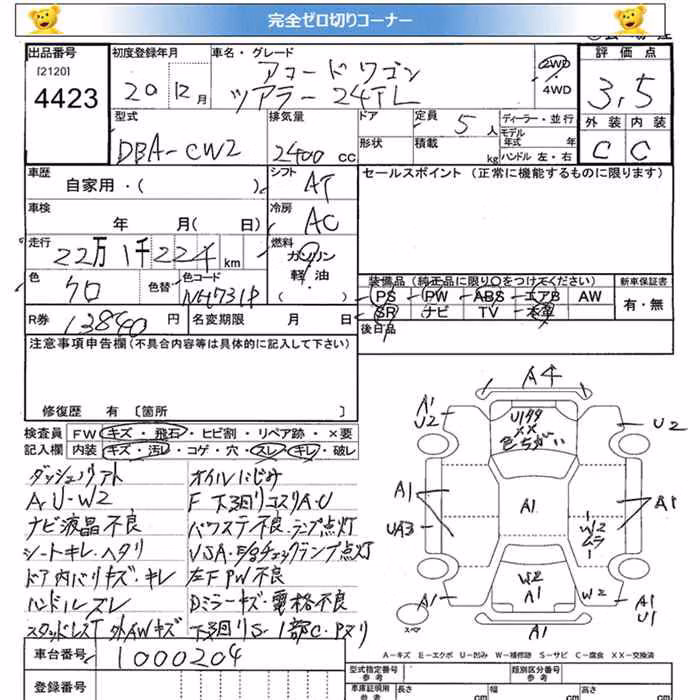 完全ゼロ切りコーナー
出品番号 初度登録年月 車名・グレード 評価点
[2120] アコードワゴン 2WD
4423 20 12月 ツアラー 24TL 4WD 3.5
型式 排気量 ドア 定員 5人 ディーラー・並行 外装 内装
DBA-CW2 2400cc 形状 積載 kg モデル年式 年 C C
ハンドル 左・右
車歴 シフト セールスポイント (正常に機能するものに限ります)
自家用・( ) AT
車検 冷房
年 月(日) AC
走行 燃料
22万1千224km ガソリン
色 色替 色コード 軽・油 装備品 (純正品に限り○をつけてください) 新車保証書
クロ NH731P ( ) PS PW ABS エアB AW 有・無
R券 13840円 名変期限 月 日 SR ナビ TV 本革
後日品
注意事項申告欄 (不具合内容等は具体的に記入して下さい)
修復歴 有 [箇所 ]
検査員 FW キズ・飛石・ヒビ割・リペア跡・×要
記入欄 内装 キズ・汚レ・コゲ・穴・スレ・キレ・破レ
ダッシュリアト オイルにじみ
A,U-W2 F下廻りコスリA・U
ナビ液晶不良 パワステ不良・ランプ点灯
シートキレ・ヘタリ VSA・チェックランプ点灯
ドア内バリキズ・キレ 左F PW不良
ハンドルスレ Dミラーキズ・電格不良
スタッドレスT 外AWキズ 下廻りS・1部C・Pヌリ
A4
A1 U2
U199
XX
色ちがい
U2
A1
A1
A1
UA3
W2
ムラ
W2
A1
A1
W2
A1
U1
A1
スペア
A-キズ E-エクボ U-凹み W-補修跡 S-サビ C-腐食 XX-交換済
車台番号 1000204
登録番号
型式指定番号 参考 類別区分番号 参考
車庫証明用 参考 長さ cm 幅 cm 高さ cm